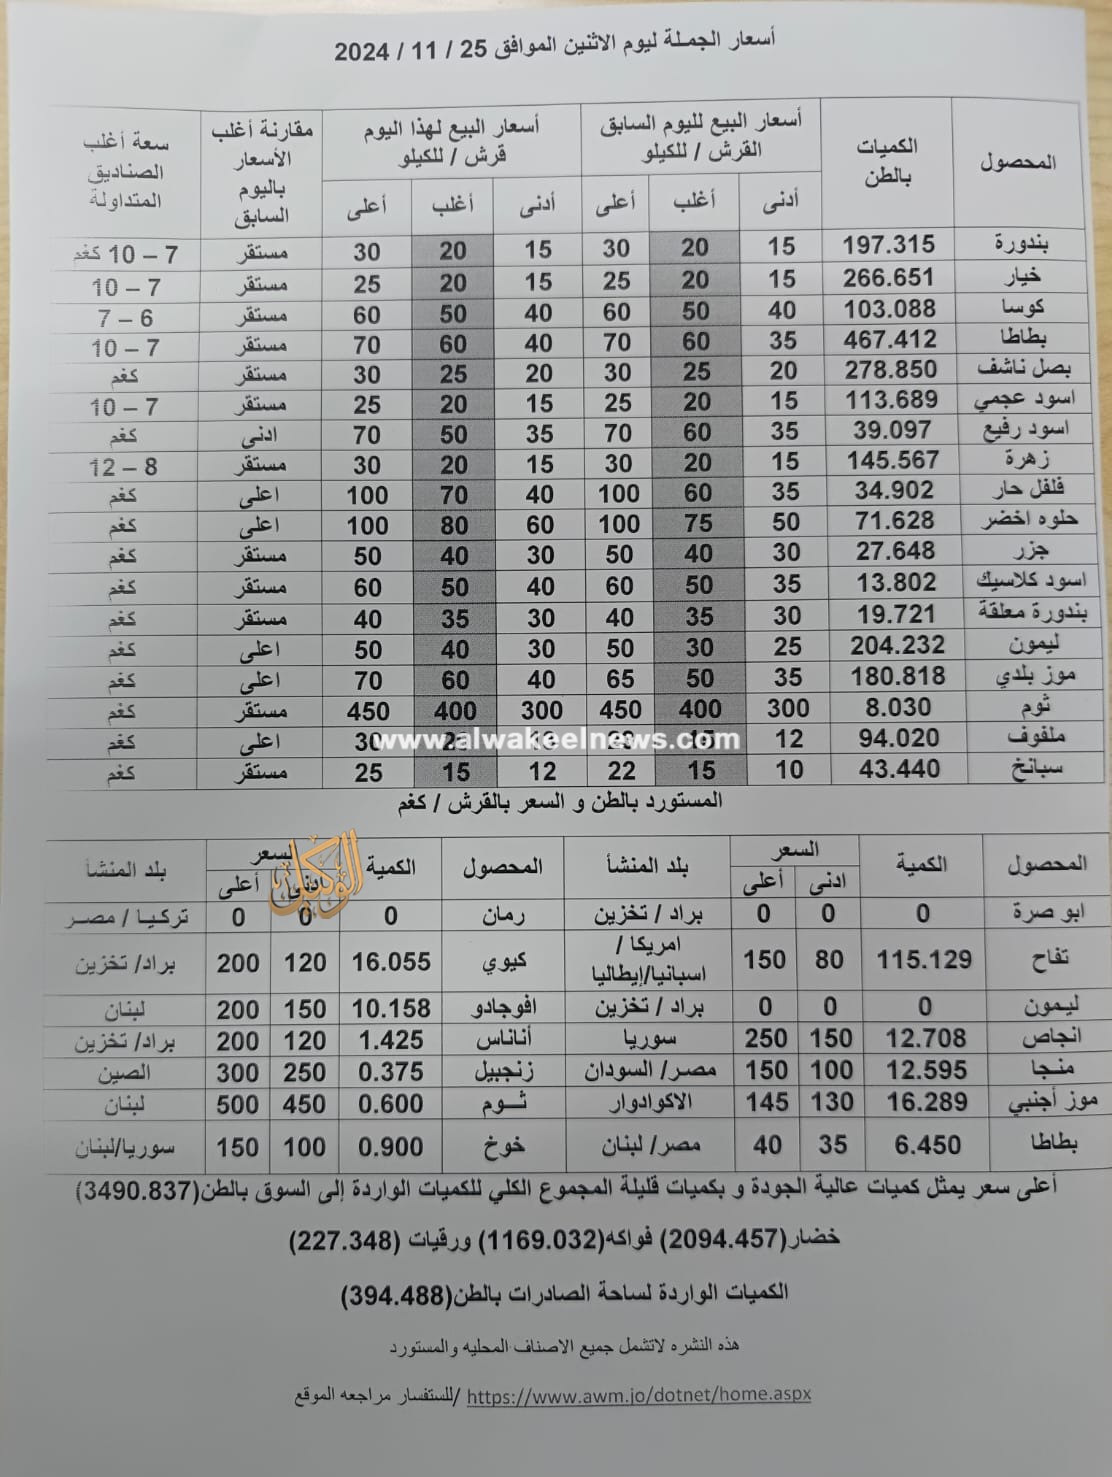 أسعار الجملة ليوم الاثنين الموافق 25 / 11 / 2024
المحصول | الكميات بالطن | أسعار البيع لليوم السابق القرش / للكيلو | أسعار البيع لهذا اليوم قرش / للكيلو | مقارنة أغلب الأسعار باليوم السابق | سعة أغلب الصناديق المتداولة
أدنى | أغلب | أعلى | أدنى | أغلب | أعلى
بندورة | 197.315 | 15 | 20 | 30 | 15 | 20 | 30 | مستقر | 7 – 10 كغم
خيار | 266.651 | 15 | 20 | 25 | 15 | 20 | 25 | مستقر | 7 – 10
كوسا | 103.088 | 40 | 50 | 60 | 40 | 50 | 60 | مستقر | 6 – 7
بطاطا | 467.412 | 35 | 60 | 70 | 40 | 60 | 70 | مستقر | 7 – 10
بصل ناشف | 278.850 | 20 | 25 | 30 | 20 | 25 | 30 | مستقر | كغم
اسود عجمي | 113.689 | 15 | 20 | 25 | 15 | 20 | 25 | مستقر | 7 – 10
اسود رفيع | 39.097 | 35 | 60 | 70 | 35 | 50 | 70 | ادنى | كغم
زهرة | 145.567 | 15 | 20 | 30 | 15 | 20 | 30 | مستقر | 8 – 12
فلفل حار | 34.902 | 35 | 60 | 100 | 40 | 70 | 100 | اعلى | كغم
حلوه اخضر | 71.628 | 50 | 75 | 100 | 60 | 80 | 100 | اعلى | كغم
جزر | 27.648 | 30 | 40 | 50 | 30 | 40 | 50 | مستقر | كغم
اسود كلاسيك | 13.802 | 35 | 50 | 60 | 40 | 50 | 60 | مستقر | كغم
بندورة معلقة | 19.721 | 30 | 35 | 40 | 30 | 35 | 40 | مستقر | كغم
ليمون | 204.232 | 25 | 30 | 50 | 30 | 40 | 50 | اعلى | كغم
موز بلدي | 180.818 | 35 | 50 | 65 | 40 | 60 | 70 | اعلى | كغم
ثوم | 8.030 | 300 | 400 | 450 | 300 | 400 | 450 | مستقر | كغم
ملفوف | 94.020 | 12 | 15 | 30 | اعلى | كغم
www.alwakeelnews.com
سبانخ | 43.440 | 10 | 15 | 22 | 12 | 15 | 25 | مستقر | كغم
المستورد بالطن و السعر بالقرش / كغم
المحصول | الكمية | السعر | بلد المنشأ | المحصول | الكمية | السعر | بلد المنشأ
ادنى | أعلى | ادنى | أعلى
الوكيل
ابو صرة | 0 | 0 | 0 | براد / تخزين | رمان | 0 | 0 | 0 | تركيا / مصر
تفاح | 115.129 | 80 | 150 | امريكا / اسبانيا/إيطاليا | كيوي | 16.055 | 120 | 200 | براد/ تخزين
ليمون | 0 | 0 | 0 | براد / تخزين | افوجادو | 10.158 | 150 | 200 | لبنان
انجاص | 12.708 | 150 | 250 | سوريا | أناناس | 1.425 | 120 | 200 | براد/ تخزين
منجا | 12.595 | 100 | 150 | مصر/ السودان | زنجبيل | 0.375 | 250 | 300 | الصين
موز أجنبي | 16.289 | 130 | 145 | الاكوادوار | ثوم | 0.600 | 450 | 500 | لبنان
بطاطا | 6.450 | 35 | 40 | مصر/ لبنان | خوخ | 0.900 | 100 | 150 | سوريا/لبنان
أعلى سعر يمثل كميات عالية الجودة و بكميات قليلة المجموع الكلي للكميات الواردة إلى السوق بالطن(3490.837)
خضار(2094.457) فواكه(1169.032) ورقيات (227.348)
الكميات الواردة لساحة الصادرات بالطن(394.488)
هذه النشره لاتشمل جميع الاصناف المحليه والمستورد
للستفسار مراجعه الموقع/ https://www.awm.jo/dotnet/home.aspx